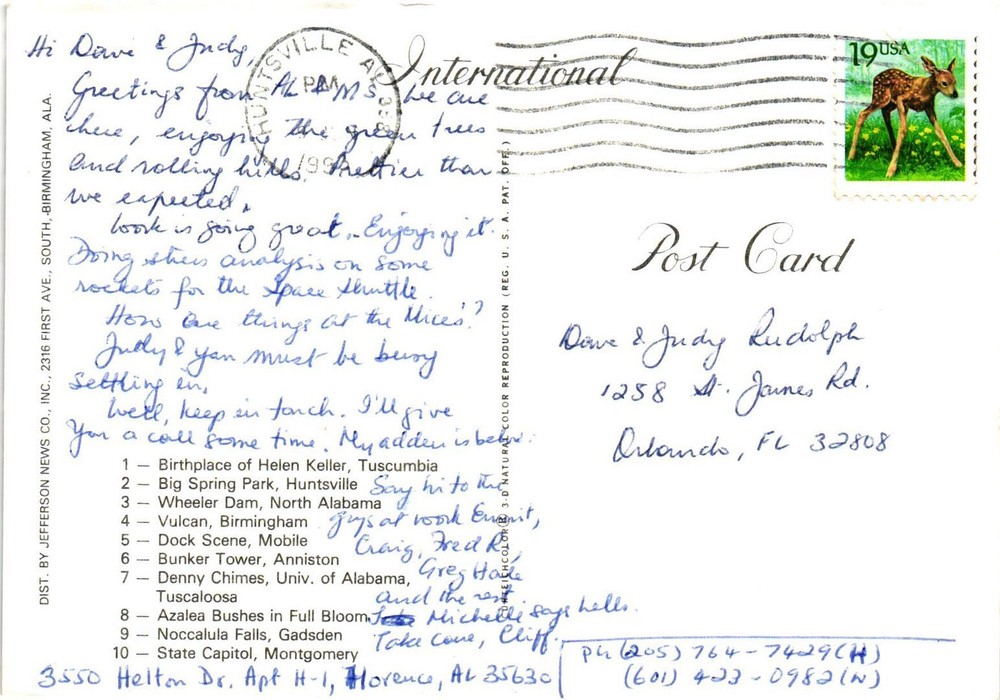 Hi Dave & Judy,
Greetings from AL & MS. We are
here, enjoying the green trees
and rolling hills. Prettier than
we expected.
Work is going great. Enjoying it.
Doing stress analysis on some
rockets for the Space Shuttle.
How are things at the Mices'?
Judy & Yan must be busy
settling in.
Well, keep in touch. I'll give
You a call some time. My address is below.
Say hi to the
guys at work
Craig, Fred R.,
Greg
and the rest.
Michelle says hello.
Take care, Cliff.
3550 Helton Dr. Apt H-1, Florence, AL 35630
Ph (205) 764-7429 (H)
(601) 423-0982 (W)
1 — Birthplace of Helen Keller, Tuscumbia
2 — Big Spring Park, Huntsville
3 — Wheeler Dam, North Alabama
4 — Vulcan, Birmingham
5 — Dock Scene, Mobile
6 — Bunker Tower, Anniston
7 — Denny Chimes, Univ. of Alabama,
Tuscaloosa
8 — Azalea Bushes in Full Bloom
9 — Noccalula Falls, Gadsden
10 — State Capitol, Montgomery
DIST. BY JEFFERSON NEWS CO., INC., 2316 FIRST AVE., SOUTH, BIRMINGHAM, ALA.
3-D NATURAL COLOR REPRODUCTION (REG. U. S. A. PAT. OFF.)
HUNTSVILLE AL
PM
International
Post Card
19 USA
Dave & Judy Rudolph
1258 St. James Rd.
Orlando, FL 32808